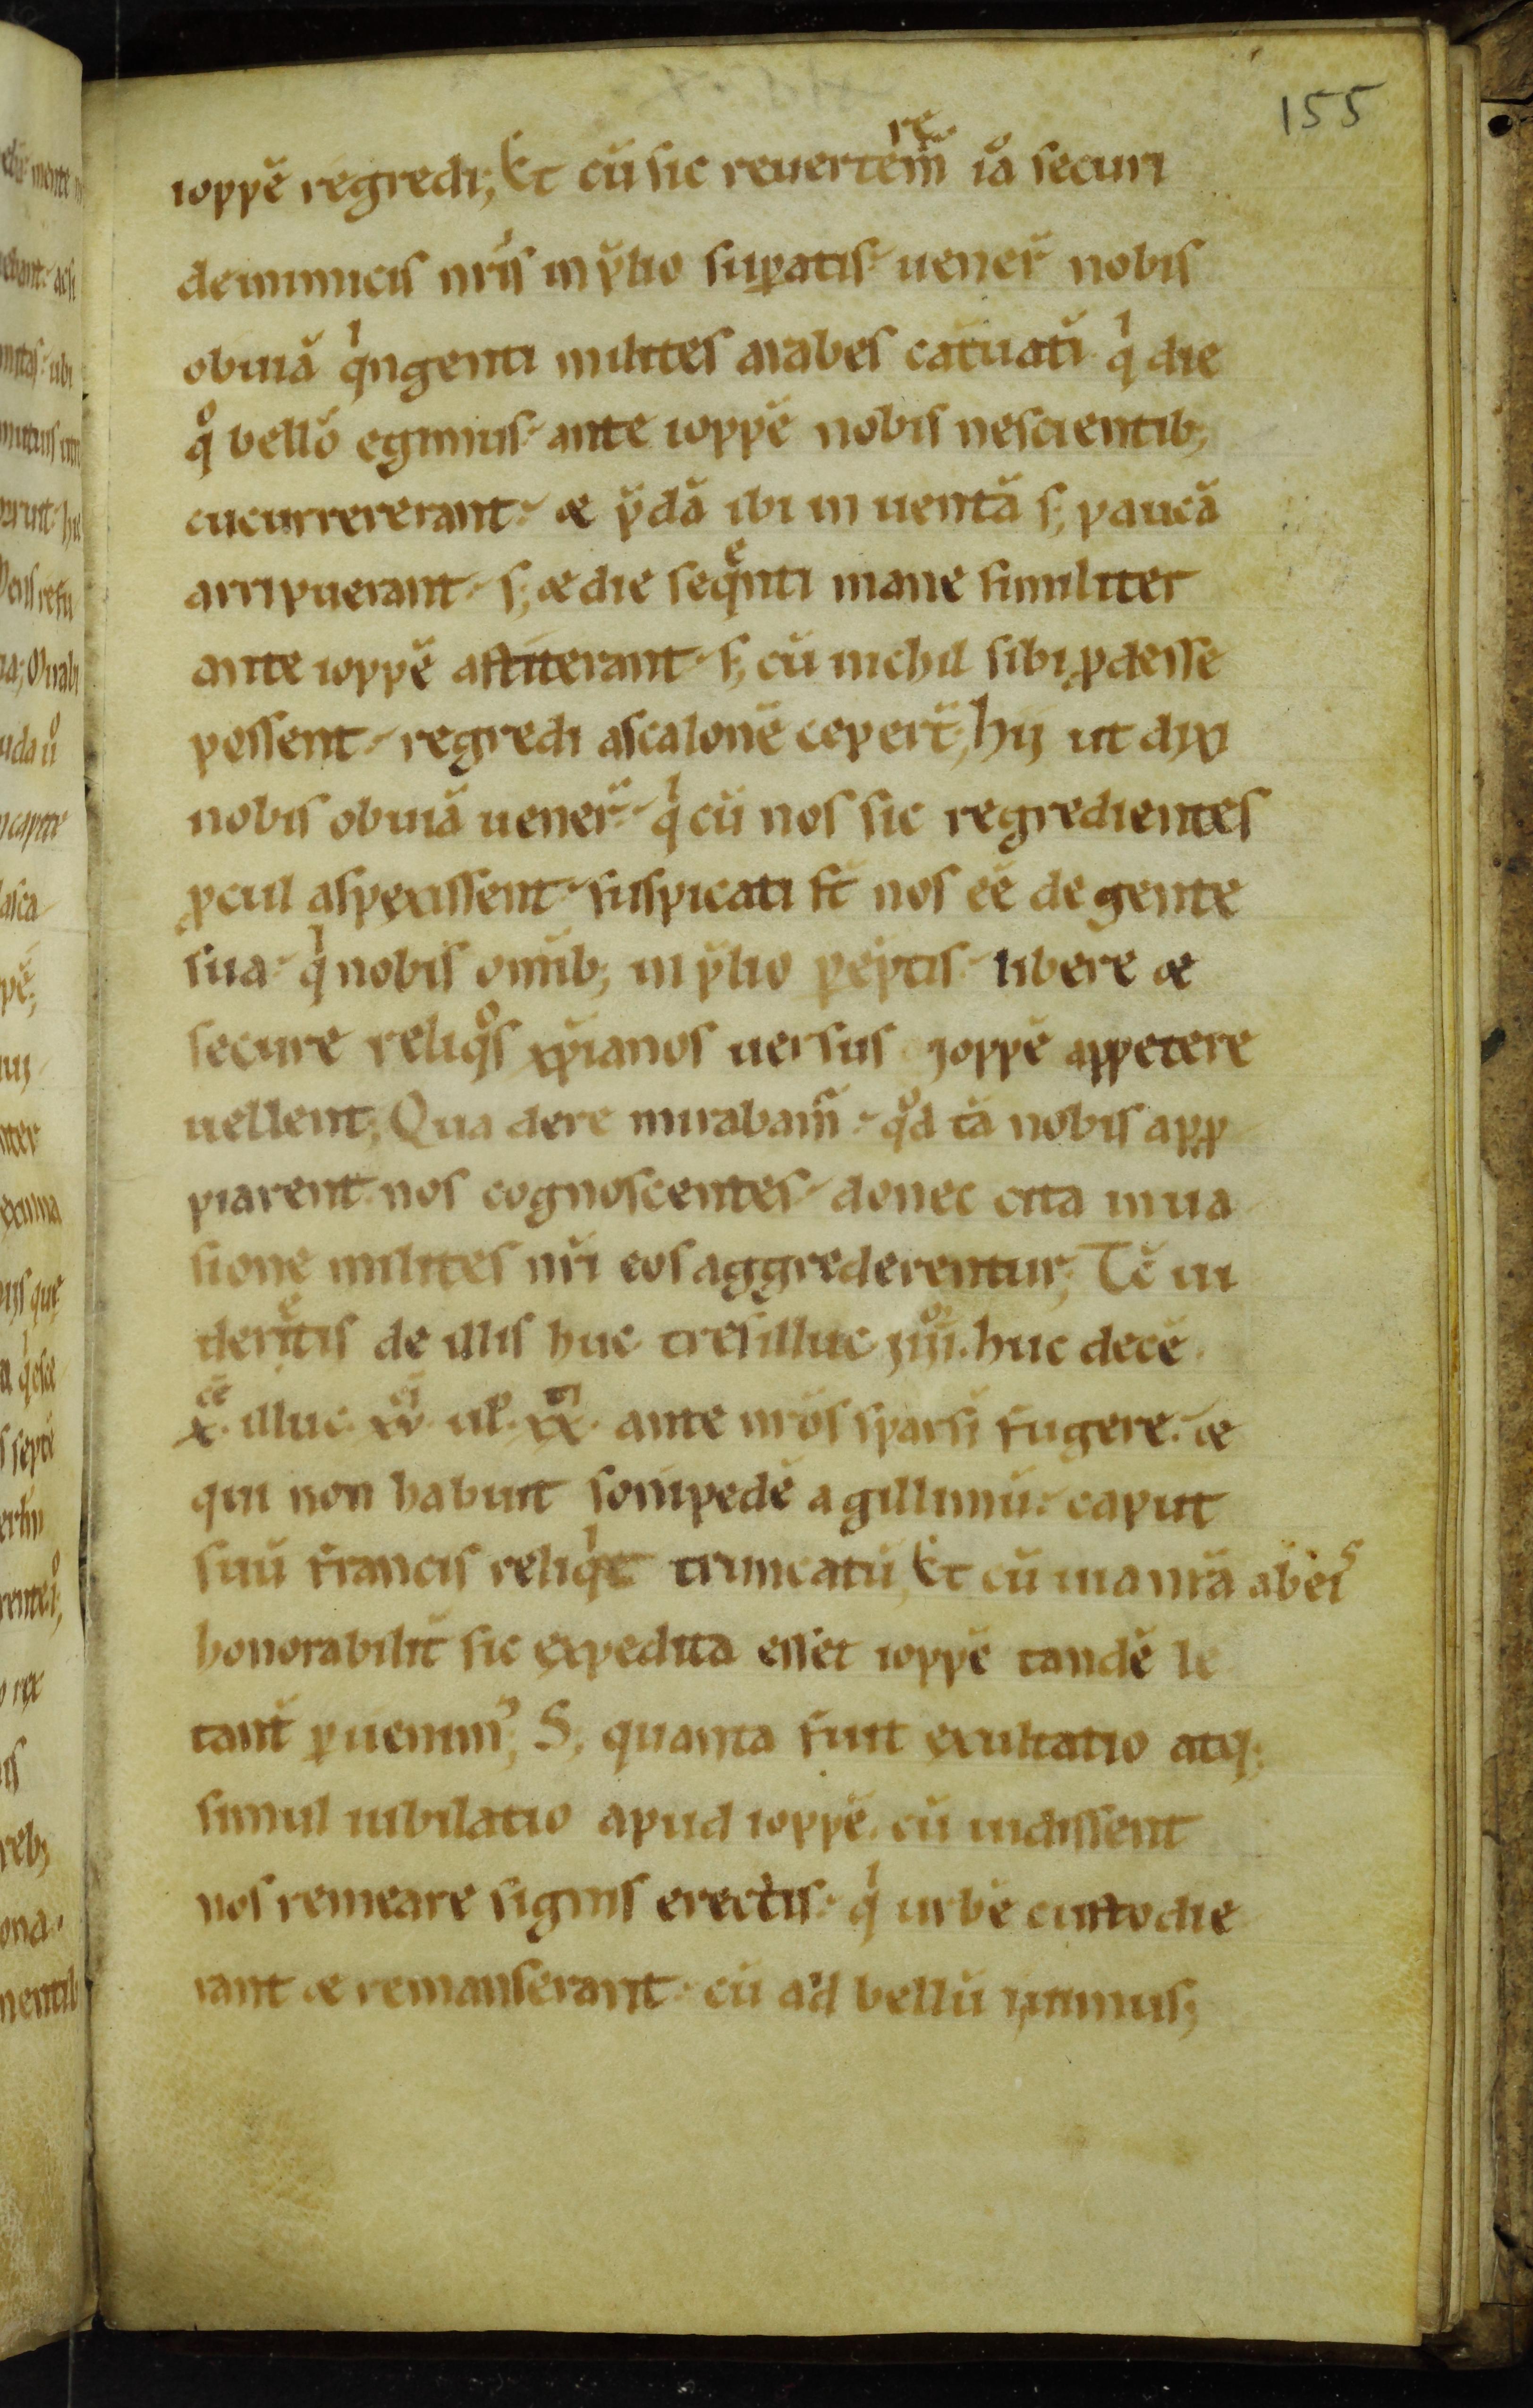 155
ioppē regredi; Et cū sic reuertem̄ re iā securi
deinimicis nr̄is in p̄lio sup̱atis. uener̄ nobis
obuiā qͥngenti milites arabes cat̄uatī qͥ die
qͦ bellū egimus. ante ioppē nobis nescientib;
cucurrererant. & p̄dā ibi inuentā s; paucā
arripuerant. s; & die seqͤnti mane similiter
ante ioppē astiterant. s; cū nichil sibi ꝓdesse
pessent. regredi ascalonē ceper̄t; hij ut dixi
nobis obuiā uener̄. qͥ cū nos sic regredientes
ꝓcul aspexissent. suspicati st̄ nos eē de gente
sua. qͥ nobis omīb; in p̄lio ꝑēptis. libere &
secure reliqͦs xp̄ianos uersus ioppē appetere
uellent; Qua dere mirabam̄. qͦd tā nobis apꝓ
piarent nos cognoscentes. donec cita inua
sione milites nr̄i eos aggrederentur; Tc̄ ui
deretis de illis huc tres illuc iiij. huc decē.
x. illuc. xv. ul̄. xx. ante nr̄os sparsī fugere. &
qui non habuit sonipedē agillimū. caput
suū francis reliqͥt truncatū; Et cū uia nr̄a ab eis
honorabilit̄ sic expedita esset ioppē tandē le
tant̄ ꝑuenim᾿; S; quanta fuit exultatio atq;
simul iubilatio apud ioppē. cū uidissent
nos remeare signis erectis. qͥ urbē custodie
rant & remanserant. cū ad bellū iuimus;